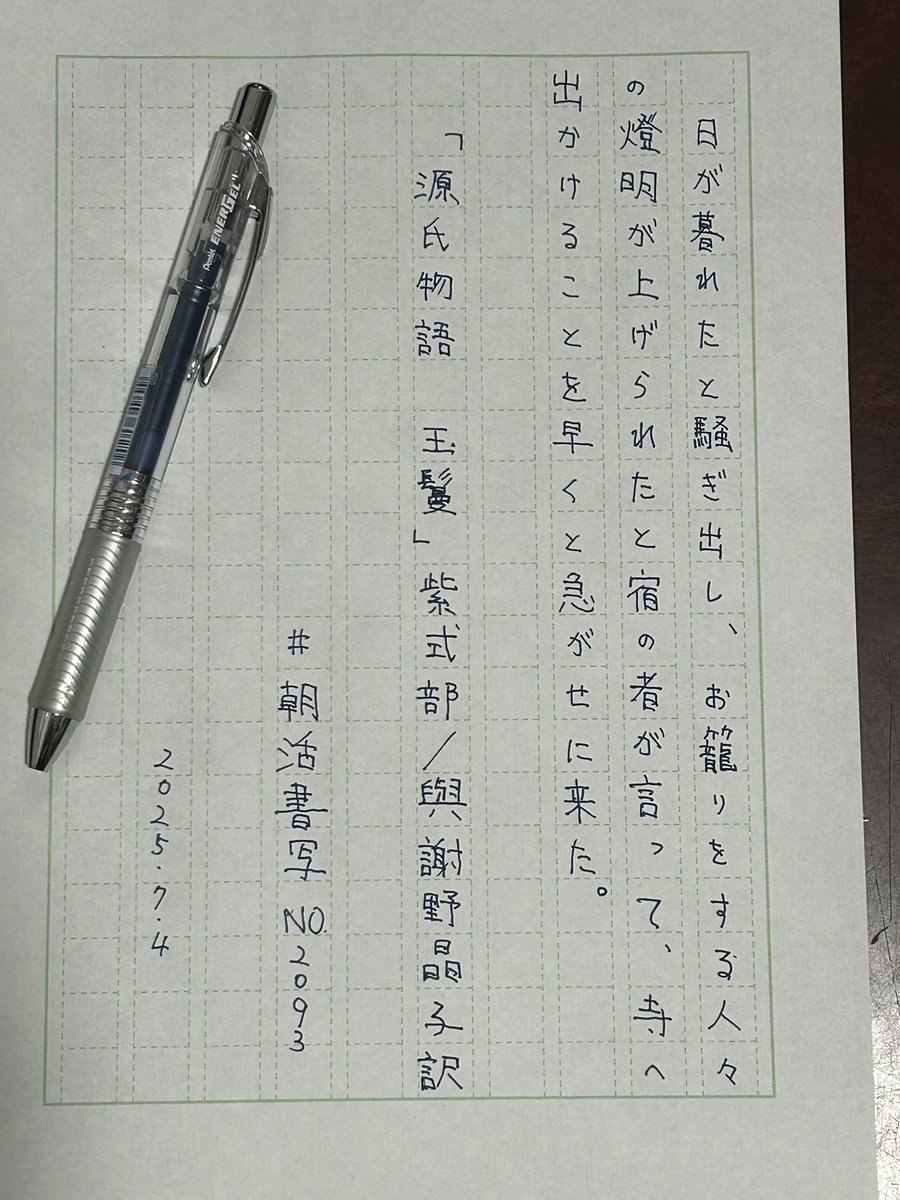 日が暮れたと騒ぎ出し、お籠りをする人々
の燈明が上げられたと宿の者が言って、寺へ
出かけることを早くと急がせに来た。
「源氏物語　玉鬘」紫式部／與謝野晶子訳
#朝活書写 NO.2093
2025.7.4
Pentel ENERGEL